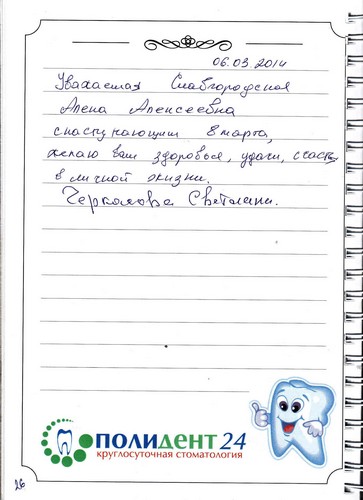 06.03.2014
Уважаемая Славгородская
Алена Алексеевна
с наступающим 8 марта,
желаю вам здоровья, удачи, счастья
в личной жизни.
Черкалова Светлана.
ПОЛИДЕНТ 24
круглосуточная стоматология
26